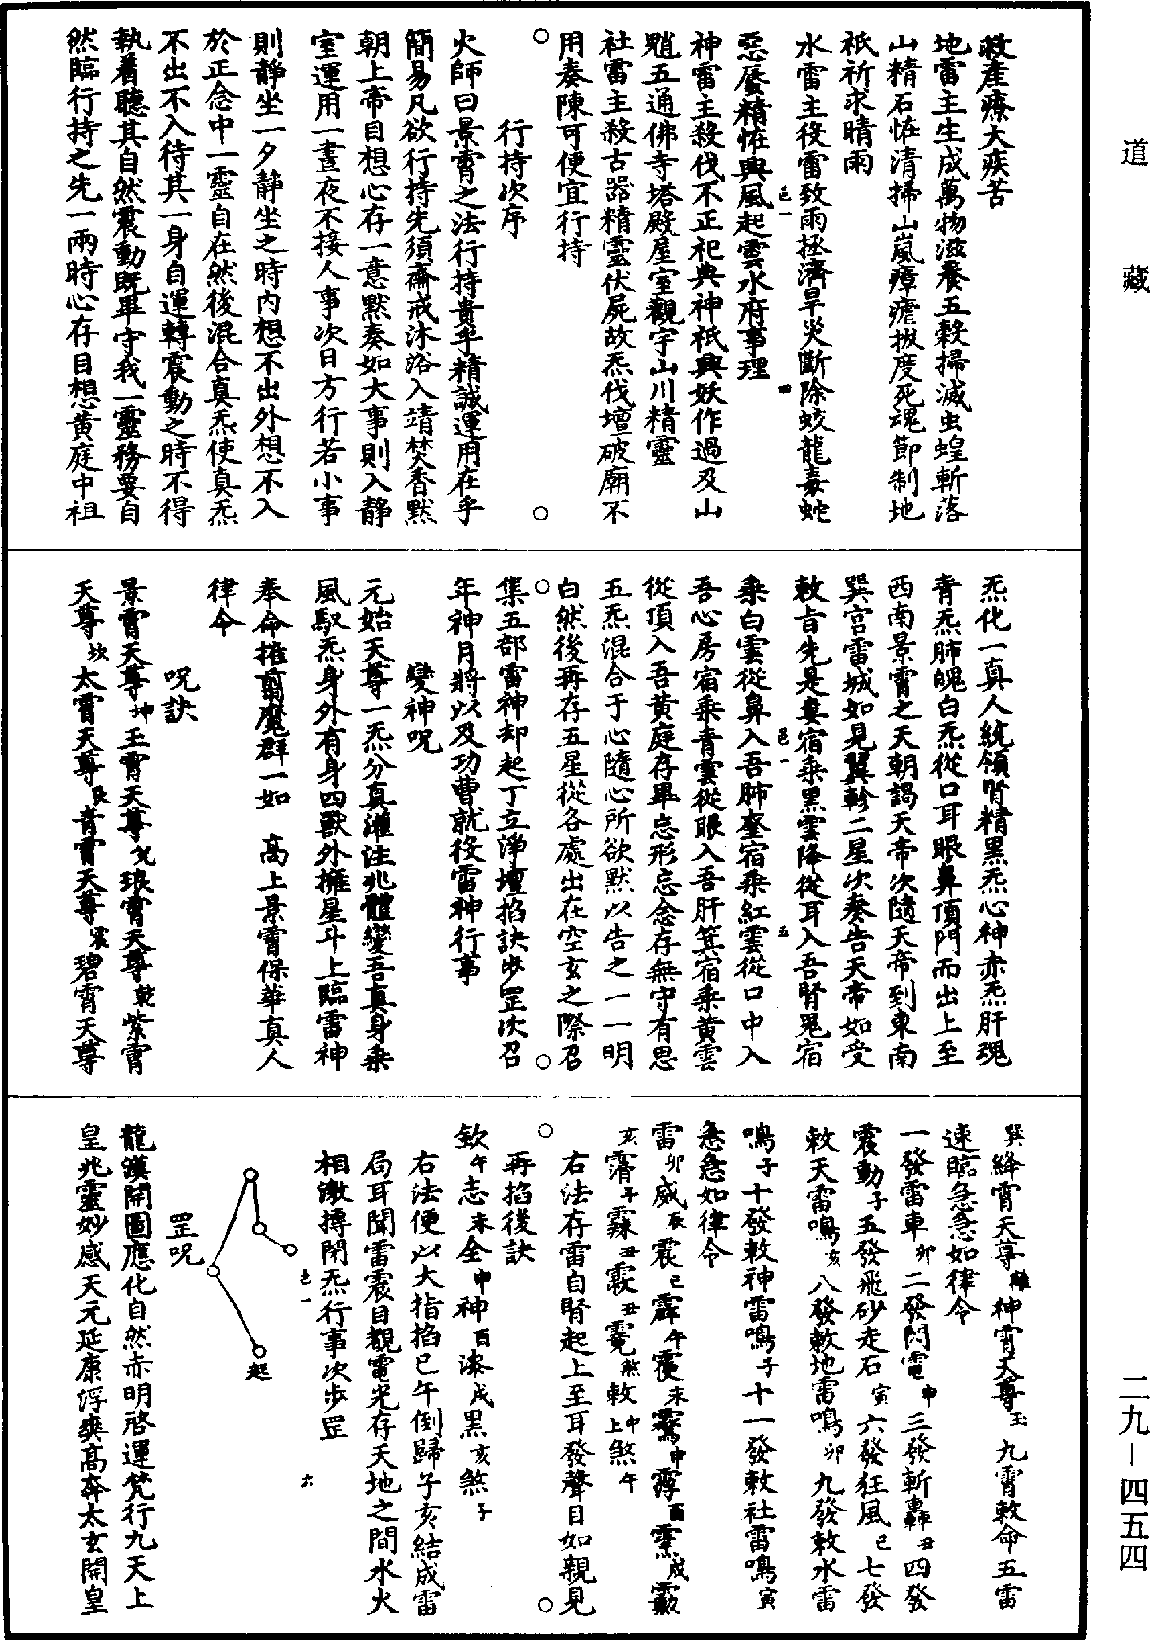 救產療大疾苦
地雷主生成萬物滋養五穀掃滅虫蝗斬落
山精石恠清掃山嵐瘴瘧拔度死魂節制地
祇祈求晴雨
水雷主役雷致雨拯濟旱災斷除蛟龍毒蛇
惡蜃精恠興風起雲水府事理
神雷主殺伐不正祀典神祇興妖作過及山
魈五通佛寺塔殿屋室觀宇山川精靈
社雷主殺古器精靈伏屍故炁伐壇破廟不
用奏陳可便宜行持
行持次序
火師曰景霄之法行持貴乎精誠運用在乎
簡易凡欲行持先須齋戒沐浴入靖焚香默
朝上帝目想心存一意默奏如大事則入靜
室運用一晝夜不接人事次日方行若小事
則靜坐一夕靜坐之時內想不出外想不入
於正念中一靈自在然後混合真炁使真炁
不出不入待其一身自運轉震動之時不得
執着聽其自然震動既畢守我一靈務要自
然臨行持之先一兩時心存目想黃庭中祖
炁化一真人統領腎精黑炁心神赤炁肝魂
青炁肺魄白炁從口耳眼鼻頂門而出上至
西南景霄之天朝謁天帝次隨天帝到東南
巽宮雷城如見翼軫二星次奏告天帝如受
敕旨先是婁宿乘黑雲降從耳入吾腎晃宿
乘白雲從鼻入吾肺奎宿乘紅雲從口中入
吾心房宿乘青雲從眼入吾肝箕宿乘黃雲
從頂入吾黃庭存畢忘形忘念存無守有思
五炁混合于心隨心所欲默以告之一一明
白然後再存五星從各處出在空玄之際召
集五部雷神却起丁立淨壇掐訣步罡次召
年神月將以及功曹就役雷神行事
變神呪
元始天尊一炁分真灌注兆體變吾真身乘
風馭炁身外有身四獸外擁星斗上臨雷神
奉命摧馘魔群一如 高上景霄保華真人
律令
呪訣
景霄天尊坤玉霄天尊兌琅霄天尊乾紫霄
天尊坎太霄天尊艮青霄天尊震碧霄天尊
巽絳霄天尊離神霄天尊玉九霄敕命五雷
速臨急急如律令
一發雷車卯二發閃電申三發斬轟丑四發
震動子五發飛砂走石寅六發狂風巳七發
敕天雷鳴亥八發敕地雷鳴卯九發敕水雷
鳴子十發敕神雷鳴子十一發敕社雷鳴寅
急急如律令
右法存雷自腎起上至耳發聲目如親見
再掐後訣
欽午志未全申神酉漆戌黑亥煞子
右法便以大指掐巳午倒歸子亥結成雷
局耳聞雷震目觀電光存天地之間水火
相激搏閉炁行事次步罡
起
罡呪
龍漢開圖應化自然赤明啓運梵行九天上
皇兆靈妙感天元延康浮爽高奔太玄開皇
道藏
二九－四五四